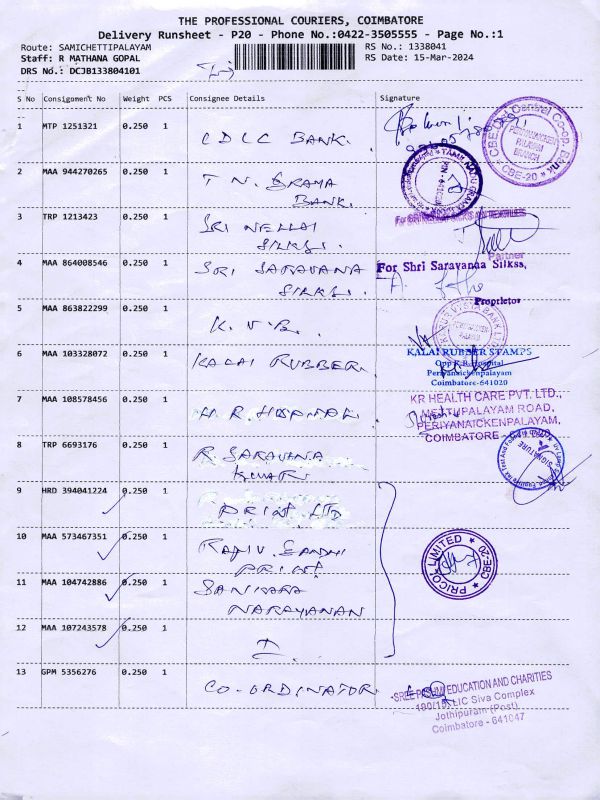 THE PROFESSIONAL COURIERS, COIMBATORE
Delivery Runsheet - P20 - Phone No.:0422-3505555 - Page No.:1
Route: SAMICHETTIPALAYAM RS No.: 1338041
Staff: R MATHANA GOPAL RS Date: 15-Mar-2024
DRS No.: DCJB133804101
S No Consignment No Weight PCS Consignee Details Signature
1 MTP 1251321 0.250 1 CDCC BANK.
CBE-20
2 MAA 944270265 0.250 1 T N. GRAMA
BANK.
3 TRP 1213423 0.250 1 SRI NELLAI
SILKS.
Partner
4 MAA 864008546 0.250 1 SRI SARAVANA
SILKS.
For Shri Saravanaa Silkss,
Proprietor
5 MAA 863822299 0.250 1 K.V.B.
6 MAA 103328072 0.250 1 KALAI RUBBER.
KALAI RUBBER STAMPS
Opp K.R. Hospital
Periyanaickenpalayam
Coimbatore-641020
7 MAA 108578456 0.250 1 K.R. HOSPITAL.
KR HEALTH CARE PVT. LTD.,
METTUPALAYAM ROAD,
PERIYANAICKENPALAYAM,
COIMBATORE
8 TRP 6693176 0.250 1 R. SARAVANA
KUMAR
SIGNATURE
9 HRD 394041224 0.250 1 PRICOL LTD
10 MAA 573467351 0.250 1 RAJIV. GANDHI
PRICOL LIMITED CBE-20
11 MAA 104742886 0.250 1 SANKARA
NARAYANAN
12 MAA 107243578 0.250 1 I.
13 GPM 5356276 0.250 1 CO-ORDINATOR
SREE RESHMI EDUCATION AND CHARITIES
190/15, LIC Siva Complex
Jothipuram (Post)
Coimbatore - 641047